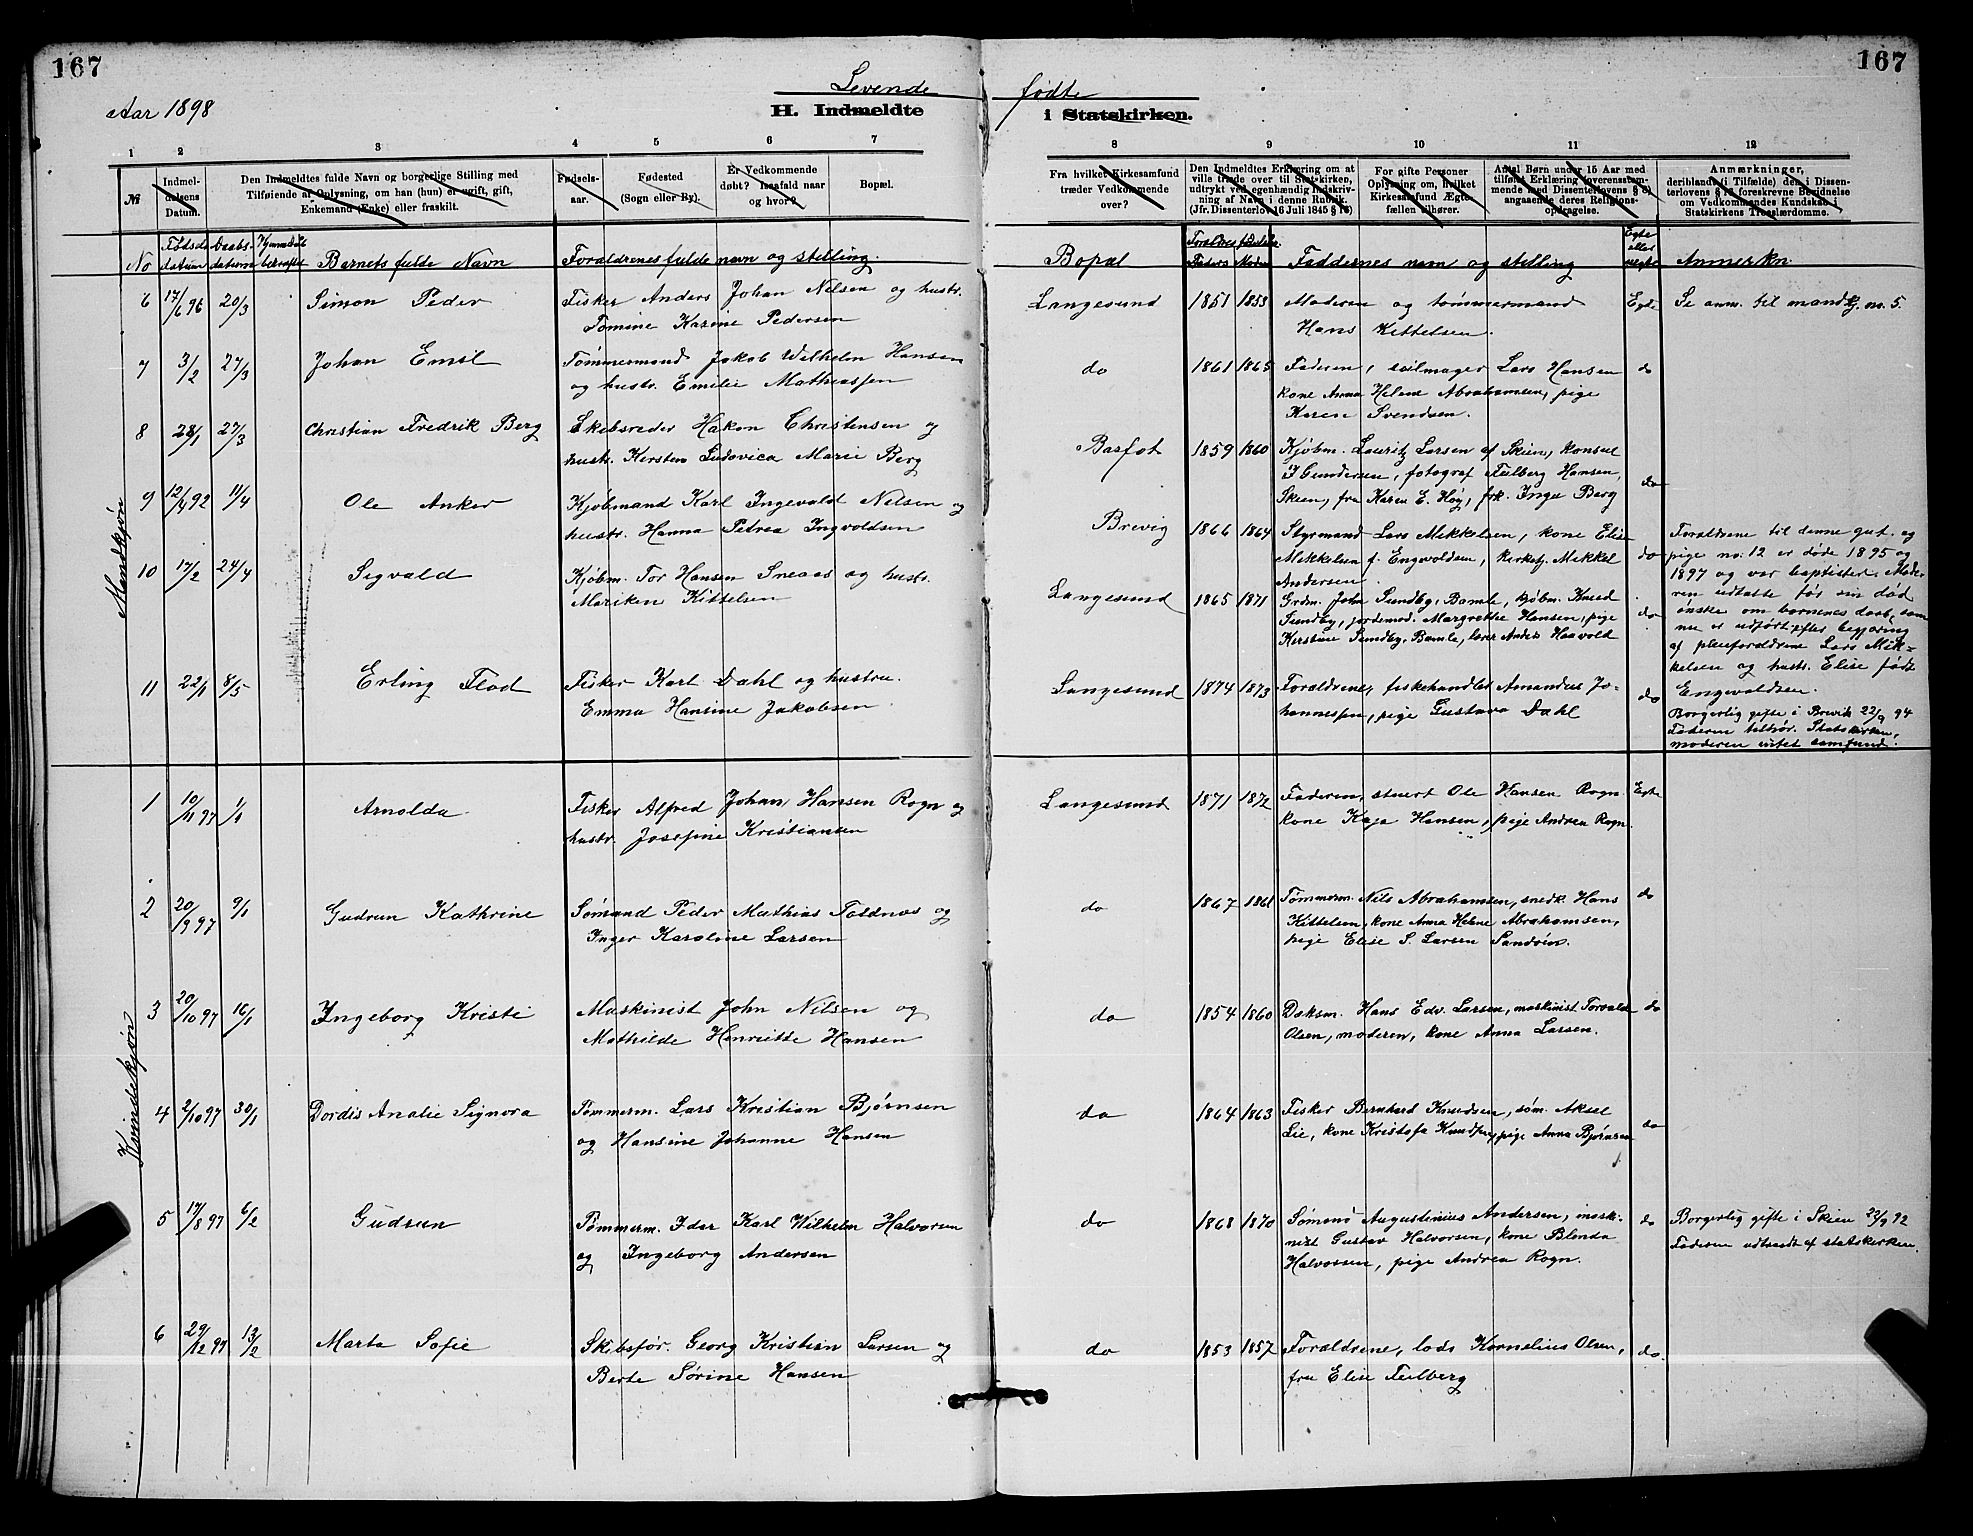 167
167
Aar 1898
Levende fødte
H. Indmeldte i Statskirken.
1 2 3 4 5 6 7 8 9 10 11 12
№
Indmel-
delsens
Datum.
Den Indmeldtes fulde Navn og borgerlige Stilling med
Tilføiende af Oplysning, om han (hun) er ugift, gift,
Enkemand (Enke) eller fraskilt.
Fødsels-
aar.
Fødested
(Sogn eller By).
Er Vedkommende
døbt? Isaafald naar
og hvor?
Bopæl.
Fra hvilket Kirkesamfund
træder Vedkommende
over?
Den Indmeldtes Erklæring om at
ville træde over til Statskirken,
udtrykt ved egenhændig Indskriv-
ning af Navn i denne Rubrik.
(Jfr. Dissenterlov 16 Juli 1845 § 18)
For gifte Personer
Oplysning om, hvilket
Kirkesamfund Ægte-
fællen tilhører.
Antal Børn under 15 Aar med
tilføiet Erklæring (overensstem-
mende med Dissenterlovens § 8)
angaaende deres Religions-
opdragelse.
Anmærkninger,
deriblandt (i Tilfælde) den i Dissen-
terlovens § 18 foreskrevne Bevidnelse
om Vedkommendes Kundskab i
Statskirkens Troeslærdomme.
No
Fødsels-
datum
Daabs-
datum
Barnets fulde Navn
Forældrenes fulde navn og stilling.
Bopæl
Forældres fødselsaar
Faders Moders
Faddernes navn og stilling
Egte
eller
uegte
Anmerkn.
Mandkjøn
6 17/6 96 20/3 Simon Peder Fisker Anders Johan Nilsen og hustr. Langesund 1851 1853 Moderen og tømmermand Egte Se anm. til mandkj. no. 5.
Tomine Karine Pedersen Hans Kittelsen.
7 3/2 27/3 Johan Emil Tømmermand Jakob Wilhelm Hansen do 1861 1865 Faderen, seilmager Lars Hansen do
og hustr. Emilie Mathiassen kone Anna Helene Abrahamsen, pige
Karen Svendsen.
8 28/1 27/3 Christian Fredrik Berg Skibsreder Hakon Christensen og Basfot 1859 1860 Kjøbm. Lauritz Larsen af Skien, konsul
hustr. Kirsten Ludovica Marie Berg J Gundersen, fotograf Feilberg Hansen, do
Skien, fru Karen E. Høy, frk. Inga Berg
9 12/4 92 11/4 Ole Anker Kjøbmand Karl Ingevald Nilsen og Brevig 1866 1864 Styrmand Lars Mikkelsen, kone Elise
hustr. Hanna Petrea Ingvoldsen Mikkelsen f. Engvoldsen, kirketj. Mikkel do
Andersen.
Forældrene til denne gut og
pige no. 12 er døde 1895 og
1897 og var baptister. Mode-
ren udtalte før sin død
ønske om børnenes daab, som
nu er udført efter begjæring
af pleieforældrene Lars Mik-
kelsen og hustr. Elise født
Engevaldsen.
10 17/2 24/4 Sigvald Kjøbm. Tor Hansen Sneaas og hustr. Langesund 1865 1871 Grdm. John Sundby, Bamle, kjøbm. Knud
Mariken Kittelsen Sundby, jordemod. Margrethe Hansen, pige do
Kirstine Sundby, Bamle, lærer Anders Haavold
11 22/1 8/5 Erling Flod Fisker Karl Dahl og hustru. Langesund 1874 1873 Forældrene, fiskehandler Amandus Jo- do
Emma Hansine Jakobsen hannessen, pige Gustava Dahl
Borgerlig gifte i Brevik 22/9 94
Faderen tilhør. Statskirken,
moderen intet samfund.
Kvindekjøn
1 10/11 97 1/1 Arnolda Fisker Alfred Johan Hansen Rogn og Langesund 1871 1872 Faderen, stuert Ole Hansen Rogn Egte
hustr. Josefine Kristiansen kone Kaja Hansen, pige Andrea Rogn.
2 20/9 97 9/1 Gudrun Kathrine Sømand Peder Mathias Toldnæs og do 1867 1861 Tømmerm. Nils Abrahamsen, snedk. Hans do
Inger Karoline Larsen Kittelsen, kone Anna Helene Abrahamsen,
pige Elise S. Larsen Sandøen.
3 20/10 97 16/1 Ingeborg Kristi Maskinist John Nilsen og do 1854 1860 Doksm. Hans Edv. Larsen, maskinist Torvald do
Mathilde Henriette Hansen Olsen, moderen, kone Anna Larsen.
4 2/10 97 30/1 Dordis Analie Signora Tømmerm. Lars Kristian Bjørnsen do 1864 1863 Fisker Bernhard Knudsen, søm. Aksel do
og Hansine Johanne Hansen Lie, kone Kristofa Knudsen, pige Anna Bjørnsen
5 17/8 97 6/2 Gudrun Tømmerm. Idar Karl Wilhelm Halvorsen do 1868 1870 Sømand Augustinius Andersen, maski- do Borgerlig gifte i Skien 22/9 92
og Ingeborg Andersen nist Gustav Halvorsen, kone Blenda Faderen udtraadt af statskirken.
Halvorsen, pige Andrea Rogn.
6 29/12 97 13/2 Marta Sofie Skibsfør. Georg Kristian Larsen og do 1853 1857 Forældrene, lods Kornelius Olsen, do.
Berte Sørine Hansen fru Elise Feilberg